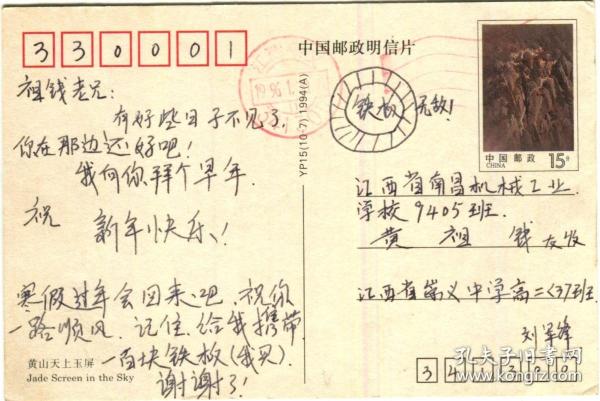 330001
中国邮政明信片
祖钱老兄:
有好些日子不见了,
你在那边还好吧!
我向你拜个早年.
祝
新年快乐!
寒假过年会回来吧.祝你
一路顺风.记住.给我携带
一百块铁板(我买).
谢谢了!
黄山天上玉屏
Jade Screen in the Sky
YP15(10-7) 1994(A)
铁板 无敌!
中国邮政
CHINA
15分
江西省南昌机械工业
学校9405班.
黄 祖 钱 友收
江西省崇义中学高二<3>班
刘军锋
341300
孔夫子旧书网
www.kongfz.com